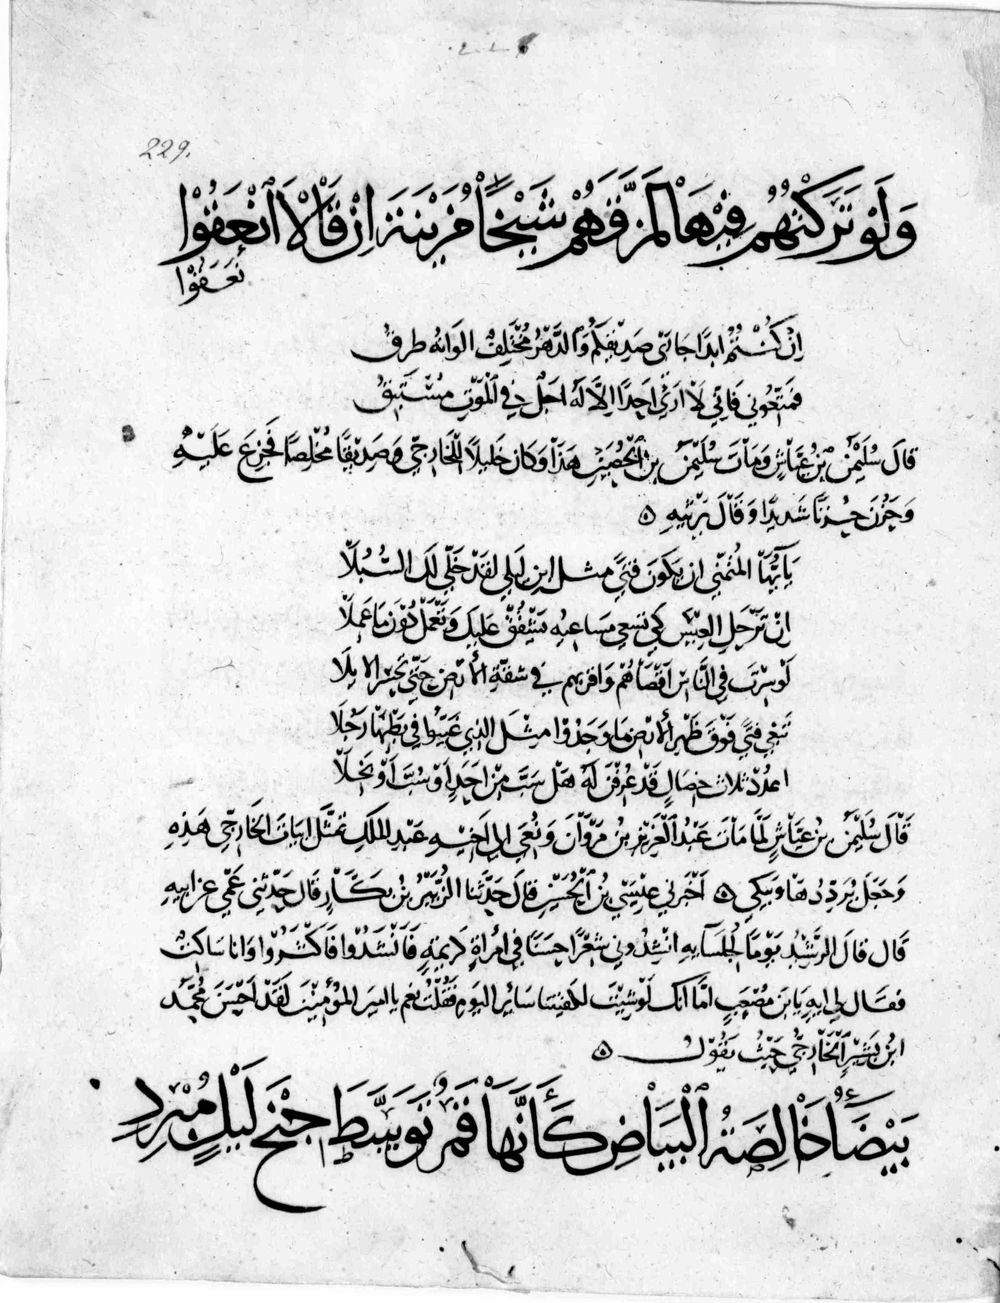 229.
وَلَوْ تَرَكْتُهُمُ فِيْهَا لَمَزَّقَهُمْ شَيْخَا مُزَيْنَةَ اِنْ قَالَا انْعَقُوْا
نَعَقُوْا
اِنْ كُنْتُمُ ابدًا جَاتَي صَدِيْقِكُمُ وَالدَّهْرُ مُخْتَلِفٌ الوَانهُ طرقُ
فمَتِّعُوني فَانّي لَاْ ارَى اَحَدًا الِاَّ لَهُ اَجَلٌ فِي الْمَوْتِ مُسْتَبَقُ
قالَ سُلَيْمٰنُ بنُ عيَّاشٍ وَمَاتَ سُلَيْمٰنُ بنُ الْحُصَيْنِ هذَا وَكانَ خَليلاً لِلْخارجيّ وَصَدِيْقًا مُخْلِصًا فَجزعَ عَلَيْهِ
وَحَزنَ حُزنًا شَديدًا وَقَالَ يَرْثيهِ
يَاَيُّهَا المُتمَنّي ان يكونَ فتًي مثل ابن ليلي لقَدْ خَلّي لكَ السُّبُلَا
اِنْ تَرْحَلِ العِيْسَ كي تسعي مسَاعيهُ يَشْفُقْ عليكَ وَتَعْمَلْ دُوْنَ مَا عَمِلَا
لَوْ سِرْتَ في النَّاسِ اَقْصَاهُمْ وَاقربهم في شقّةِ الأرْضِ حَتّي تحْسر الابِلَا
تَبْغي فتًي فَوْقَ ظَهْرِ الأرْضِ مَا وَجَدُوْا مِثْلَ الذي غَيَّبُوا في بَطْنِهَا رَجُلَا
اعدُدْ ثلاث خصالٍ قَدْ عُرِفْنَ لَهُ هَلْ سَبَّ مِنْ اَحَدٍ اَوْ سُبَّ اَوْ بَخِلَا
قَالَ سُلَيْمٰنُ بنُ عَيَّاشٍ لَمَّا مَاتَ عَبْدُ الْعَزِيْزِ بنُ مَرْوَانَ وَنُعيَ الي اَخيهِ عَبْدِ الملكِ تمَثَّلَ ابيَاتَ الخَارجيّ هَذهِ
وَجَعَلَ يُرَدّدُهَا وَيَبكي اَخْبَرني عِيْسَي بْنُ الْحُسَيْنِ قالَ حَدَّثنا الزُّبَيْرُ بْنُ بكَّارٍ قَالَ حَدَّثني عَمّي عن ابيهِ
قَالَ قالَ الرَّشيدُ يَوْمًا لِجُلَسَآئهِ انشِدُوني شعْرًا حَسَنًا في امْرأةٍ كَريمَةٍ فَاَنْشَدُوْا فَاَكْثَرُوْا وَانا سَاكتٌ
فقَالَ لي ايهٍ يَا بنَ مُصْعَبٍ امَّا انكَ لَوْ شِئْتَ لكفيتنا سَائرَ اليَومِ فَقُلْتُ نعَم يا اميرَ المُؤْمنِينَ لقَدْ اَحْسَنَ مُحمَّدُ
ابنُ بَشِيْرٍ الْخَارجيُّ حَيْثُ يَقُوْلُ
بَيْضَآءُ خَالِصَةُ الْبَيَاضِ كَأَنَّهَا قَمَرٌ تَوَسَّطَ جِنْحَ لَيْلٍ مُبْرِدِ